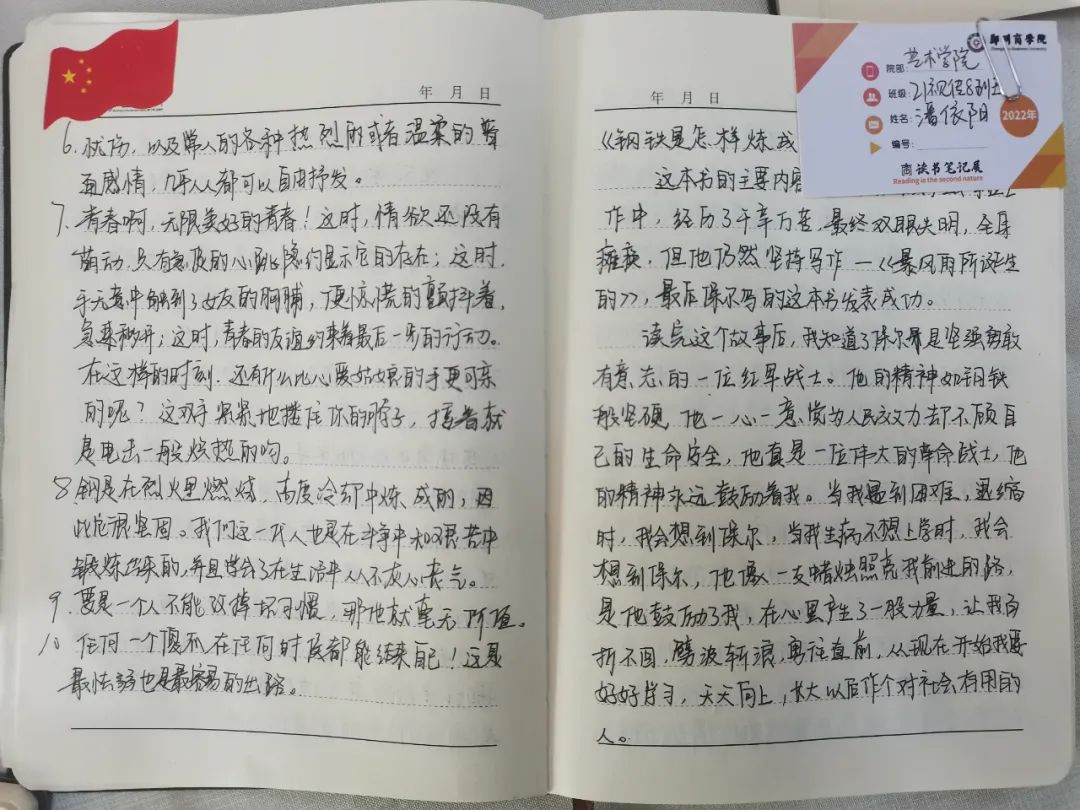 年 月 日
6. 忧伤，以及常人的各种热烈的或者温柔的普
通感情，几乎人人都可以自由抒发。
7. 青春啊，无限美好的青春！这时，情欲还没有
萌动，只有急促的心跳隐约显示它的存在；这时，
手无意中触到了女友的胸脯，便惊慌的颤抖着，
急速移开；这时，青春的友谊约束着最后一步的行动。
在这样的时刻，还有什么比心爱姑娘的手更可亲
的呢？这双手紧紧地搂住你的脖子，接着就
是电击一般炽热的吻。
8 钢是在烈火里燃烧、高度冷却中炼成的，因
此它很坚固。我们这一代人也是在斗争中和艰苦中
锻炼出来的，并且学会了在生活中从不灰心丧气。
9. 要是一个人不能改掉坏习惯，那他就毫无价值。
10 任何一个傻瓜在任何时候都能结束自己！这是
最怯弱也是最容易的出路。
年 月 日
《钢铁是怎样炼成
这本书的主要内容
作中，经历了千辛万苦，最终双眼失明，全身
瘫痪，但他仍然坚持写作—《暴风雨所诞生
的》，最后保尔写的这本书发表成功。
读完这个故事后，我知道了保尔是坚强勇敢
有意志的一位红军战士。他的精神如钢铁
般坚硬，他一心一意为人民效力却不顾自
己的生命安全，他真是一位伟大的革命战士，他
的精神永远鼓励着我。当我遇到困难，退缩
时，我会想到保尔，当我生病不想上学时，我会
想到保尔，他像一支蜡烛照亮我前进的路，
是他鼓励了我，在心里产生了一股力量，让我百
折不回，劈波斩浪，勇往直前，从现在开始我要
好好学习，天天向上，长大以后作个对社会有用的
人。
郑州商学院
院部：艺术学院
班级：21视传8班
姓名：潘依阳
编号：
2022年
商读书笔记展
Reading is the second nature